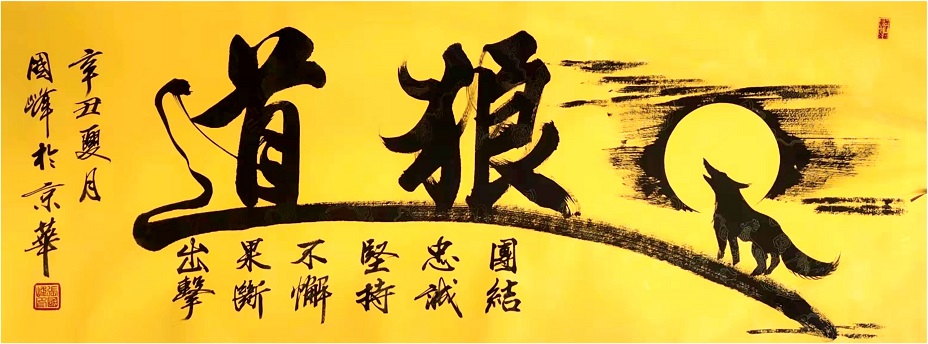 狼道
團結
忠誠
堅持
不懈
果斷
出擊
辛丑夏月
國峰於京華